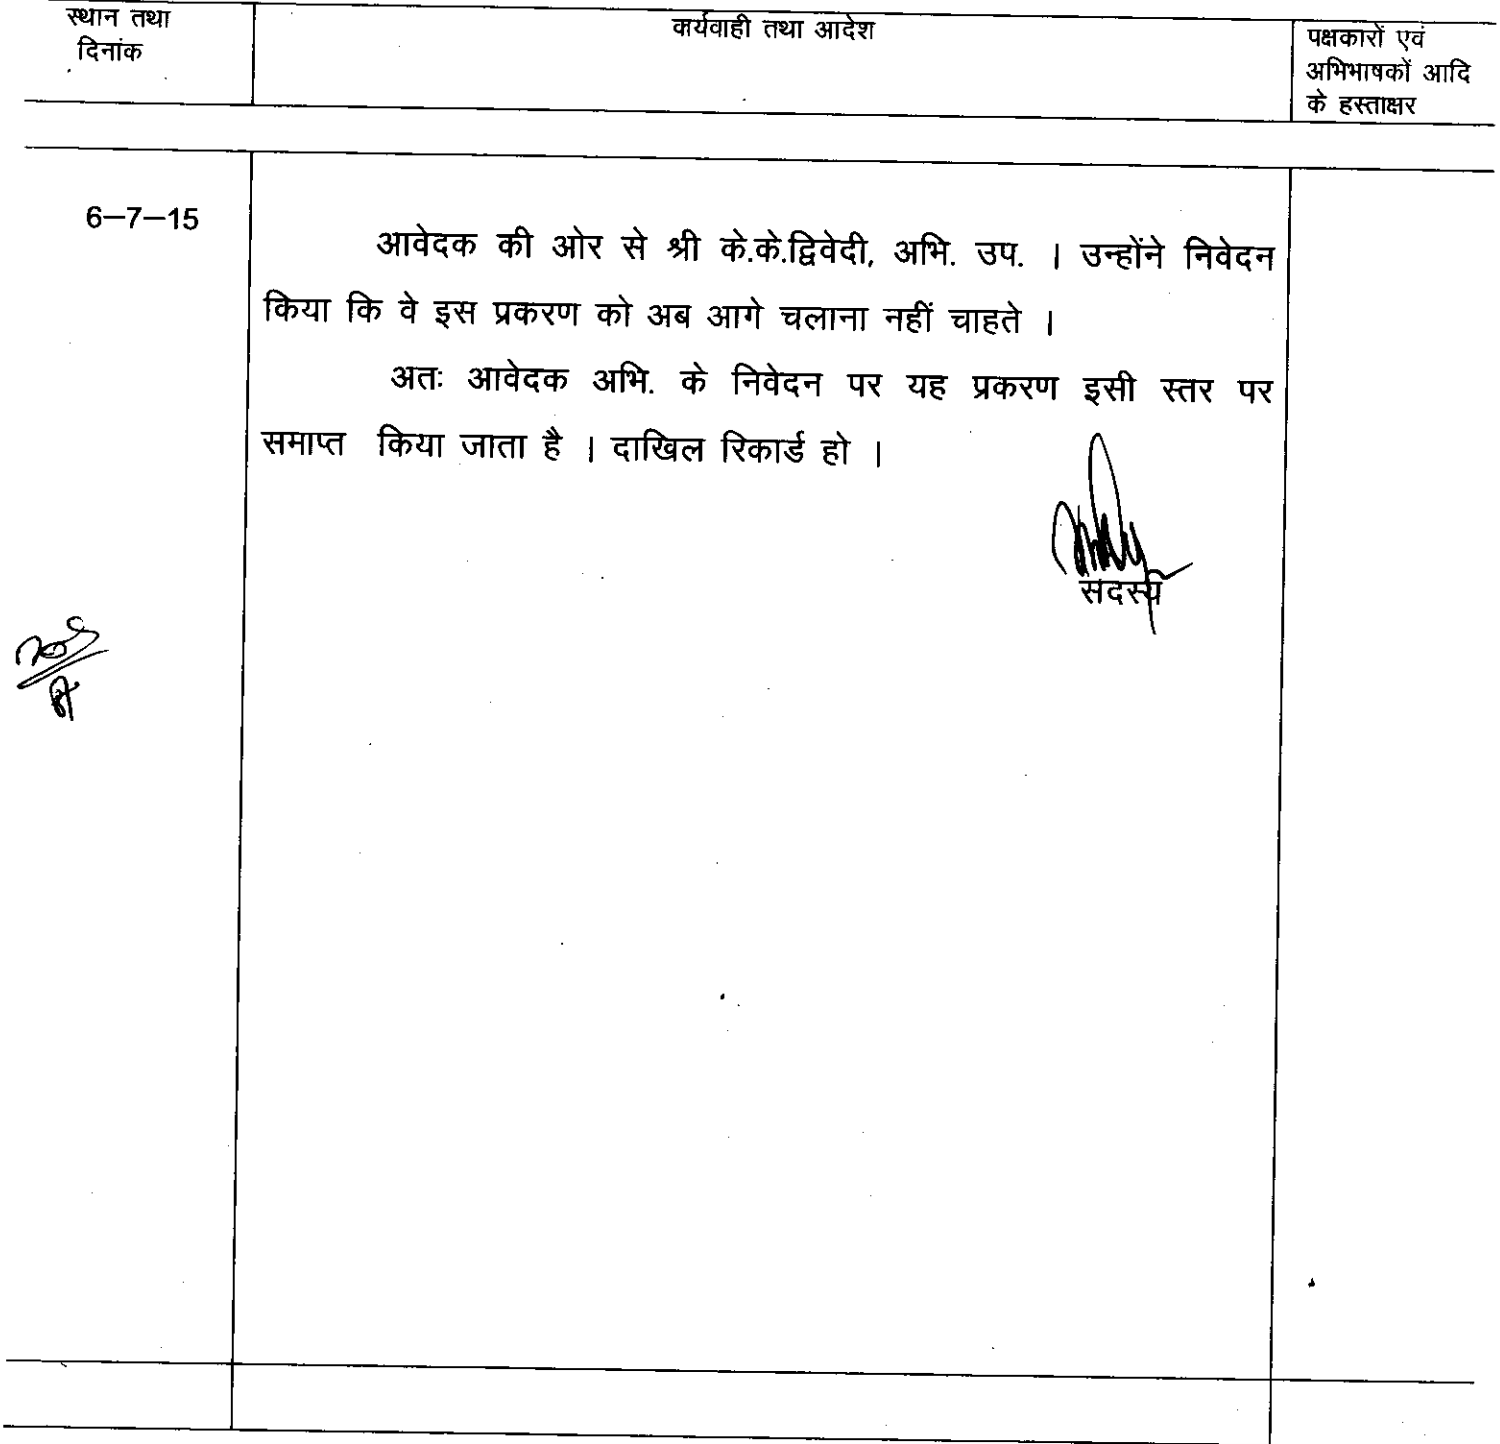 स्थान तथा
दिनांक
कार्यवाही तथा आदेश
पक्षकारों एवं
अभिभाषकों आदि
के हस्ताक्षर
6–7–15
आवेदक की ओर से श्री के.के.द्विवेदी, अभि. उप. । उन्होंने निवेदन
किया कि वे इस प्रकरण को अब आगे चलाना नहीं चाहते ।
अतः आवेदक अभि. के निवेदन पर यह प्रकरण इसी स्तर पर
समाप्त किया जाता है । दाखिल रिकार्ड हो ।
सदस्य